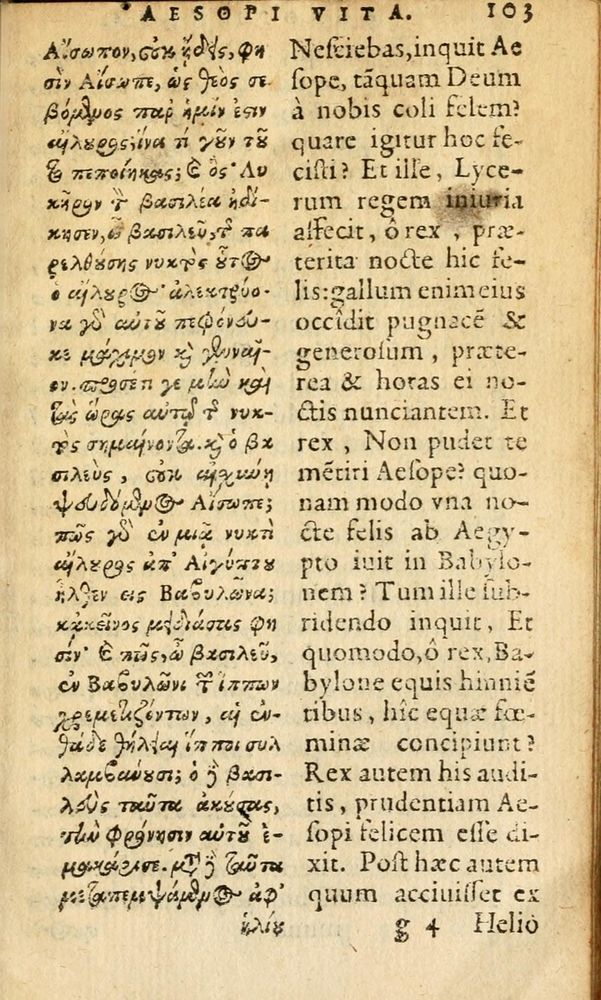 AESOPI VITA. 103
Αἴσωπον, οὐκ ᾔδης, φη
σὶν Αἴσωπε, ὡς θεὸς σε
βόμενος παρ' ἡμῖν ἐστιν
αἴλουρος; ἵνα τί γοῦν τοῦ
το πεποίηκας; καὶ ὅς· Λυ
κῆρον τὸν βασιλέα ἠδί-
κησεν, ὦ βασιλεῦ, τῆς πα
ρελθούσης νυκτὸς οὗτος
ὁ αἴλουρος· ἀλεκτρυό-
να γὰρ αὐτοῦ πεφόνευ-
κε μάχιμον καὶ γενναῖ-
ον. προσέτι γε μὴν καὶ
τὰς ὥρας αὐτῷ τῆς νυκ-
τὸς σημαίνοντα. καὶ ὁ βα
σιλεὺς, οὐκ αἰσχύνῃ
ψευδόμενος Αἴσωπε;
πῶς γὰρ ἐν μιᾷ νυκτὶ
αἴλουρος ἀπ' Αἰγύπτου
ἦλθεν εἰς Βαβυλῶνα;
κἀκεῖνος μειδιάσας φη
σίν· καὶ πῶς, ὦ βασιλεῦ,
ἐν Βαβυλῶνι τῶν ἵππων
χρεμετιζόντων, αἱ ἐν-
θάδε θήλειαι ἵπποι συλ
λαμβάνουσι; ὁ δὲ βασι-
λεὺς ταῦτα ἀκούσας,
τὴν φρόνησιν αὐτοῦ ἐ-
μακάρισε. μετὰ δὲ ταῦτα
μεταπεμψάμενος ἀφ'
ἡλίου
Neſciebas, inquit Ae
ſope, tāquam Deum
à nobis coli felem?
quare igitur hoc fe-
ciſti? Et ille, Lyce-
rum regem iniuria
affecit, ô rex, præ-
terita nocte hic fe-
lis: gallum enim eius
occîdit pugnacē &
generoſum, præte-
rea & horas ei no-
ctis nunciantem. Et
rex, Non pudet te
mētiri Aeſope? quo-
nam modo vna no-
cte felis ab Aegy-
pto iuit in Babylo-
nem? Tum ille ſub-
ridendo inquit, Et
quomodo, ô rex, Ba-
bylone equis hinniē
tibus, hîc equæ fœ-
minæ concipiunt?
Rex autem his audi-
tis, prudentiam Ae-
ſopi felicem eſſe di-
xit. Poſt hæc autem
quum acciuiſſet ex
g 4 Helio